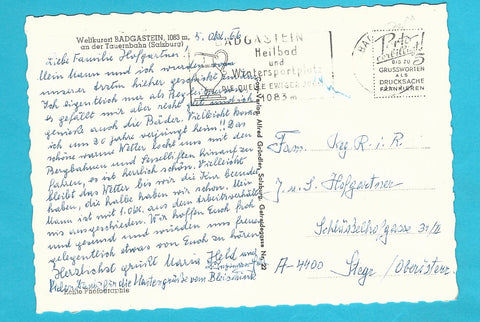 Weltkurort BADGASTEIN, 1083 m,
an der Tauernbahn (Salzburg)
5. Okt. 67
Liebe Familie Hofgartner!
Mein Mann und ich wurden von
unserer Ärztin hieher geschickt.
Ich eigentlich nur als Begleit
es gefällt mir aber recht gut und ich
genieße auch die Bäder. Vielleicht komm
ich um 20 Jahre verjüngt heim!! Das
schöne warme Wetter lockt uns mit den
Bergbahnen und Sesselliften hinauf zu
fahren, es ist herrlich schön. Vielleicht
bleibt das Wetter bis wir die Kur beendet
haben, die halbe haben wir schon. Mein
Mann ist mit 1. Okt. aus dem Arbeitsverhält
nis ausgeschieden. Wir hoffen Euch froh
und gesund und würden uns freuen
gelegentlich etwas von Euch zu hören.
Herzlichst grüßt Maria Held und
Echte Photographie
BADGASTEIN
Heilbad
und
Wintersportplatz
DIE QUELLE EWIGER
1083 m
BAD
BIS ZU
5
GRUSSWORTEN
ALS
DRUCKSACHE
FRANKIEREN
Verlag Alfred Gründler, Salzburg, Getreidegasse Nr. 22
Fam. Reg. R. i. R.
J. u. S. Hofgartner
Schlüsselhofgasse
A-4400 Steyr/Oberösterr.